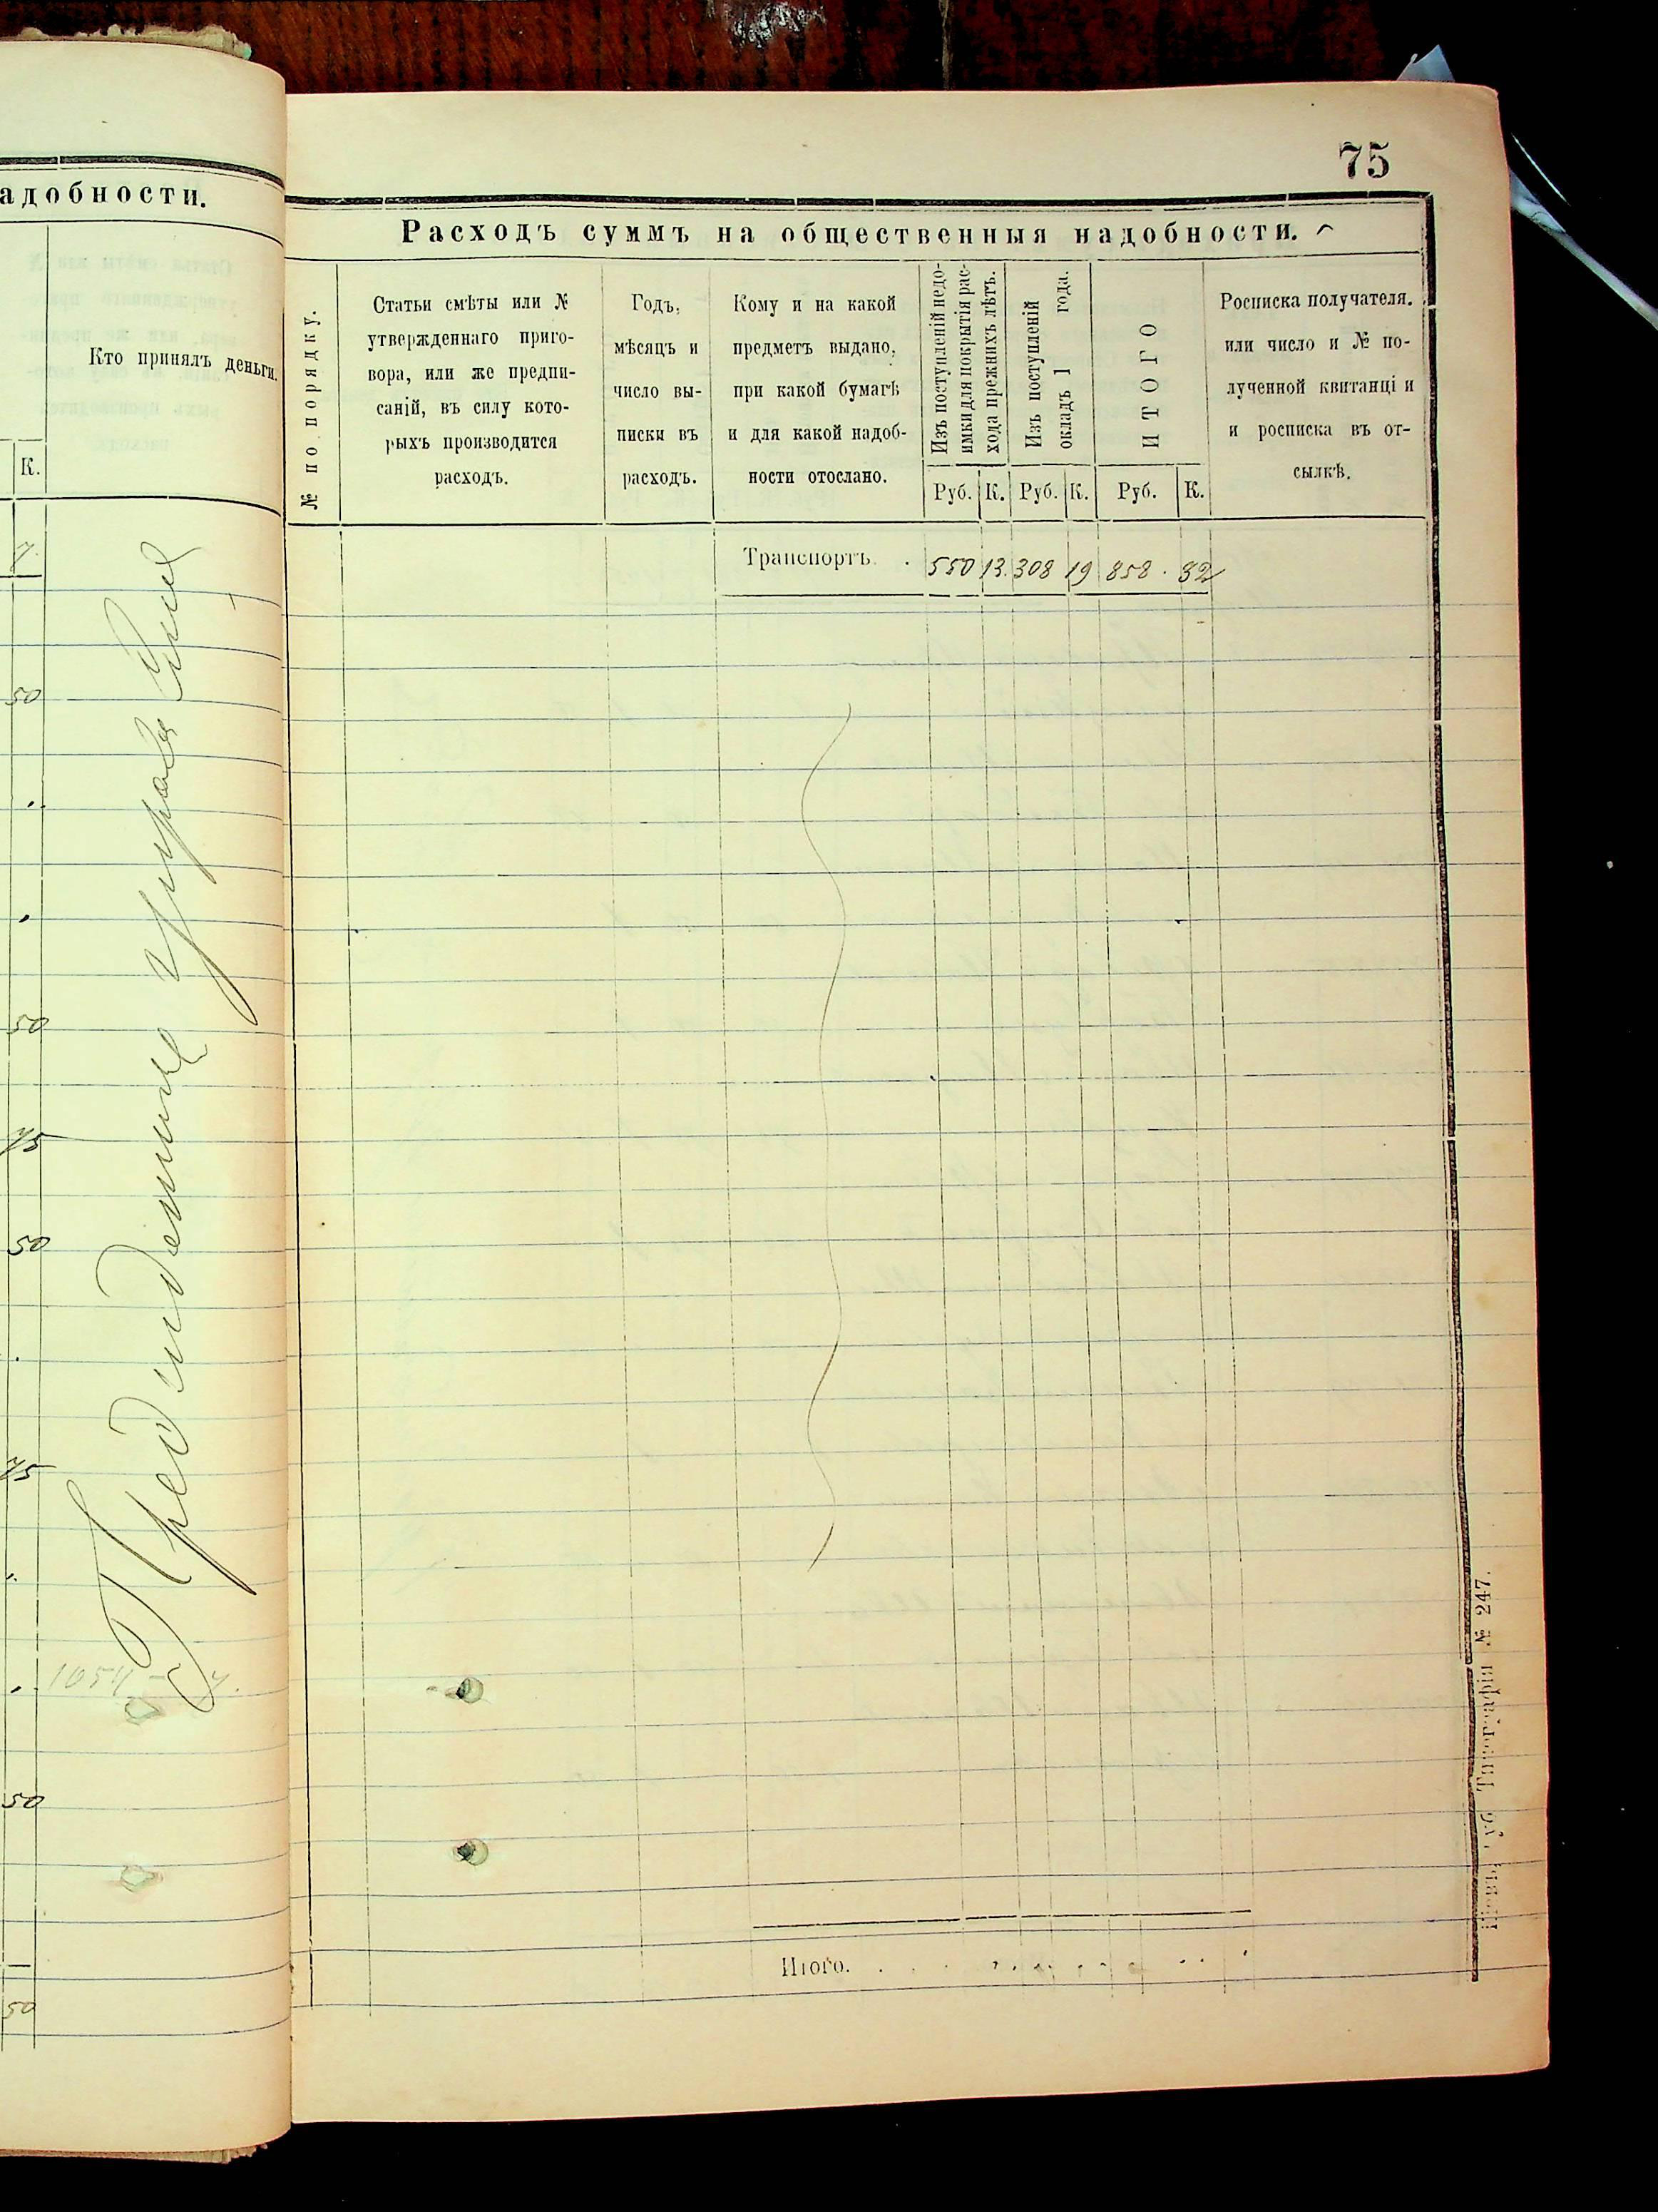 адобности.
Кто принялъ деньги.
К.
7.
50
50
75
50
75
1054 - 7.
50
50
75
Расходъ суммъ на общественныя надобности.
№ по порядку.
Статьи смѣты или №
утвержденнаго приго-
вора, или же предпи-
саній, въ силу кото-
рыхъ производится
расходъ.
Годъ,
мѣсяцъ и
число вы-
писки въ
расходъ.
Кому и на какой
предметъ выдано,
при какой бумагѣ
и для какой надоб-
ности отослано.
Изъ поступленій недо-
имки для покрытія рас-
хода прежнихъ лѣтъ.
Изъ поступленій
окладъ 1 года.
ИТОГО
Росписка получателя.
или число и № по-
лученной квитанці и
и росписка въ от-
сылкѣ.
Руб. К. Руб. К. Руб. К.
Транспортъ. 550 13. 308 19 858 . 32
Итого.
Типографія № 247.